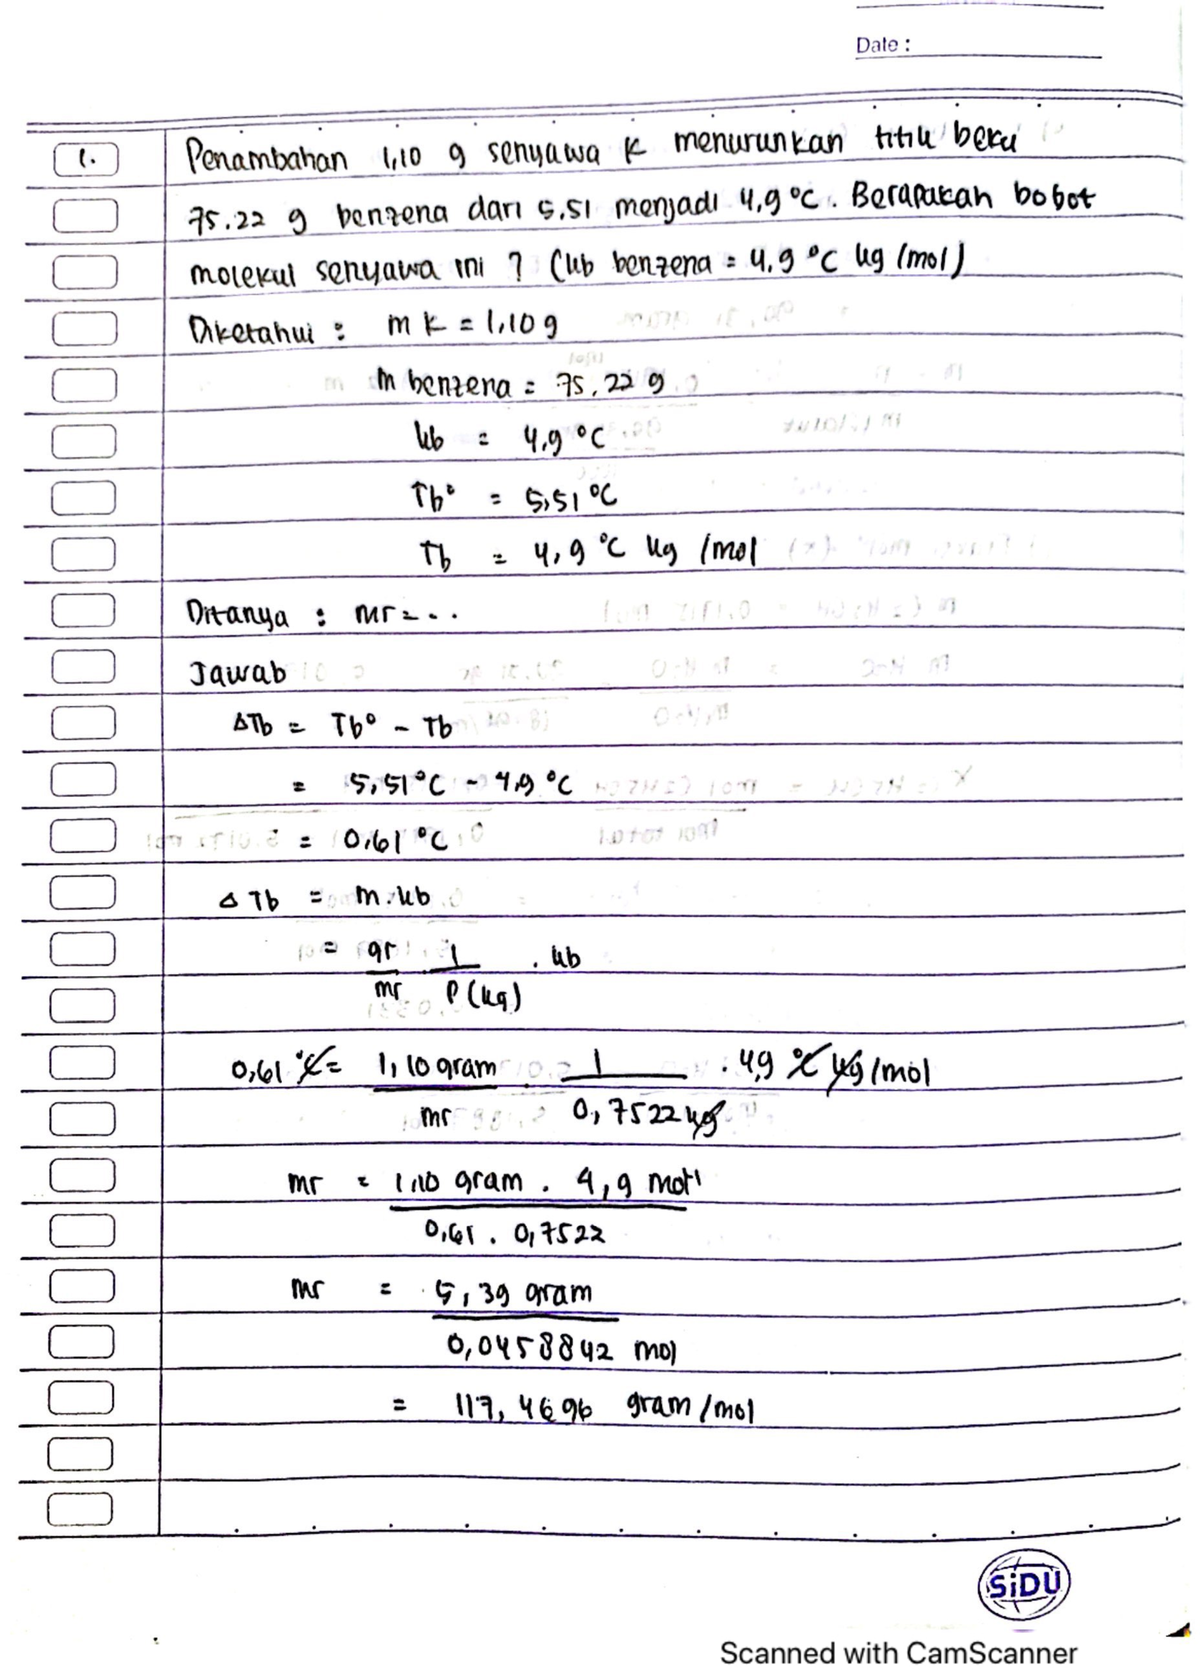 Date :
1. Penambahan 1,10 g senyawa K menurunkan titik beku
75.22 g benzena dari 5.51 menjadi 4,9 °C. Berapakah bobot
molekul senyawa ini ? (kb benzena = 4,9 °C kg /mol)
Diketahui : m K = 1,10 g
m benzena = 75,22 g
kb = 4,9 °C
Tb° = 5,51 °C
Tb = 4,9 °C kg /mol
Ditanya : mr = ...
Jawab
ΔTb = Tb° - Tb
= 5,51°C - 4,9 °C
= 0,61 °C
Δ Tb = m . kb
= gr 1 . kb
mr P (kg)
0,61 °C = 1,10 gram . 1 . 4,9 °C kg /mol
mr 0,7522 kg
mr = 1,10 gram . 4,9 mol
0,61 . 0,7522
mr = 5,39 gram
0,0458842 mol
= 117,4696 gram /mol
SiDU
Scanned with CamScanner